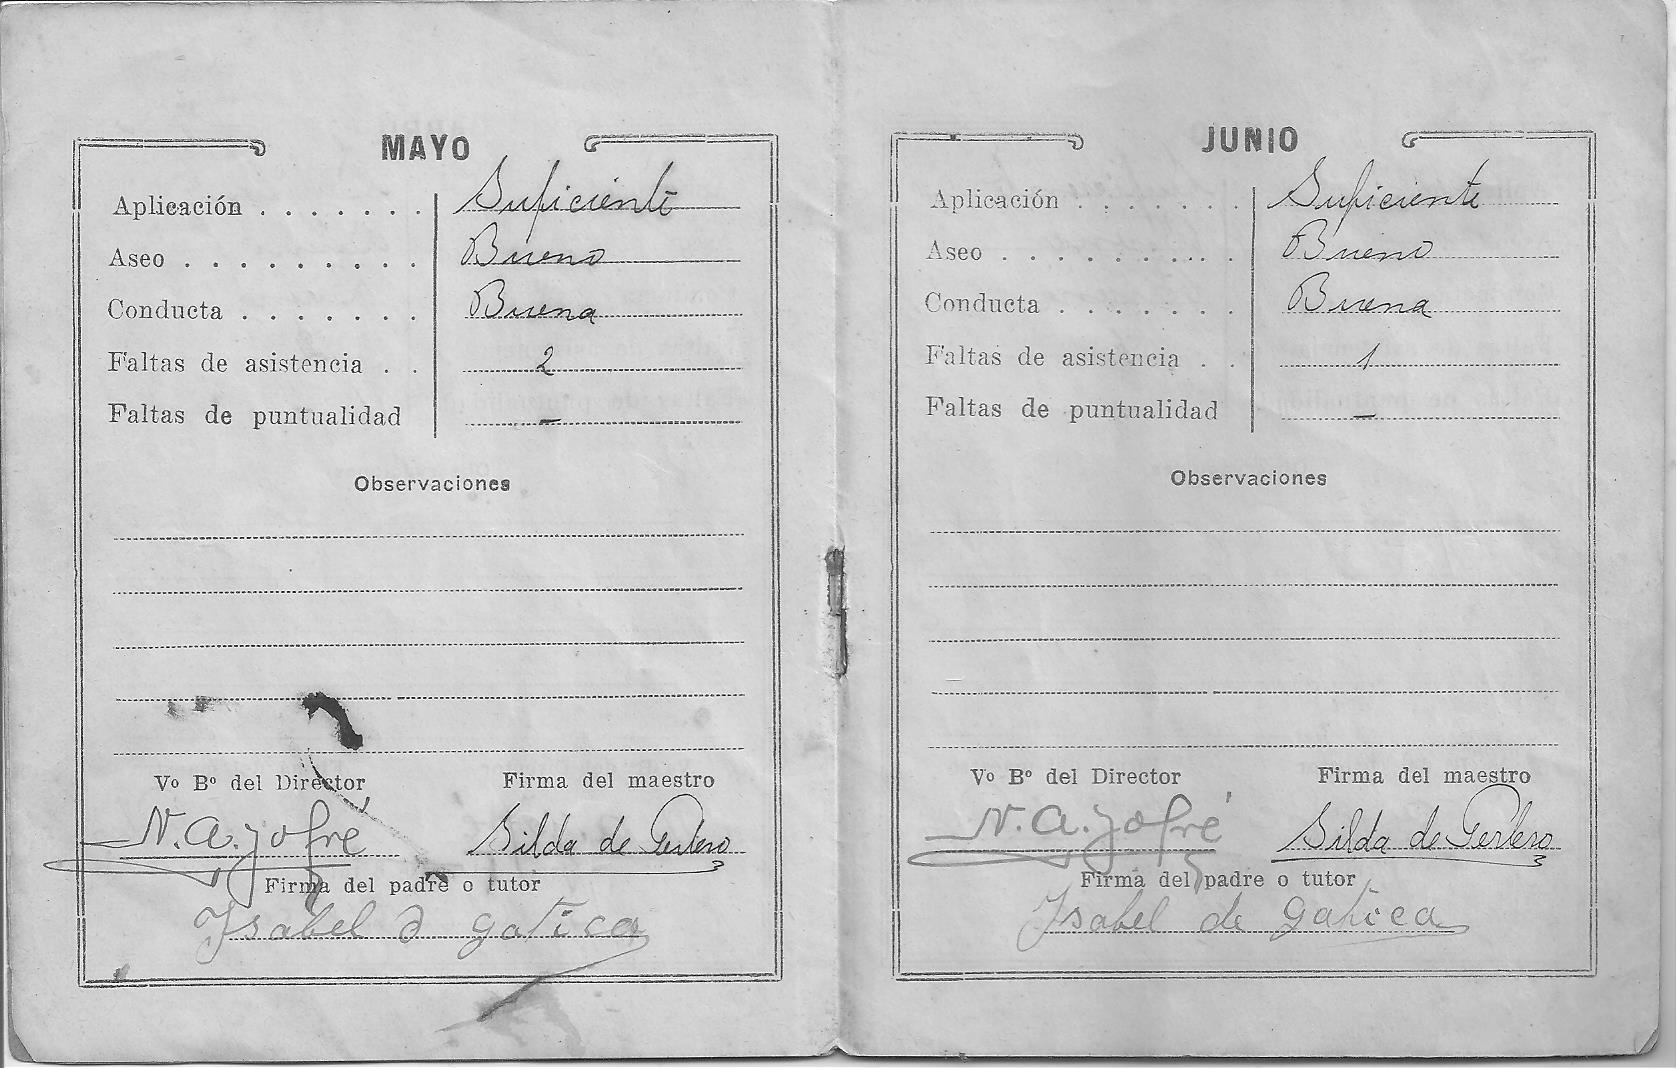 MAYO
Aplicación . . . . . . . Suficiente
Aseo . . . . . . . . . Bueno
Conducta . . . . . . . Buena
Faltas de asistencia . . 2
Faltas de puntualidad —
Observaciones
Vº Bº del Director Firma del maestro
N. A. Jofré Silda de
Firma del padre o tutor
Ysabel d gatica
JUNIO
Aplicación . . . . . . . Suficiente
Aseo . . . . . . . . . . Bueno
Conducta . . . . . . . Buena
Faltas de asistencia . . 1
Faltas de puntualidad —
Observaciones
Vº Bº del Director Firma del maestro
N. A. Jofré Silda de
Firma del padre o tutor
Ysabel de gatica